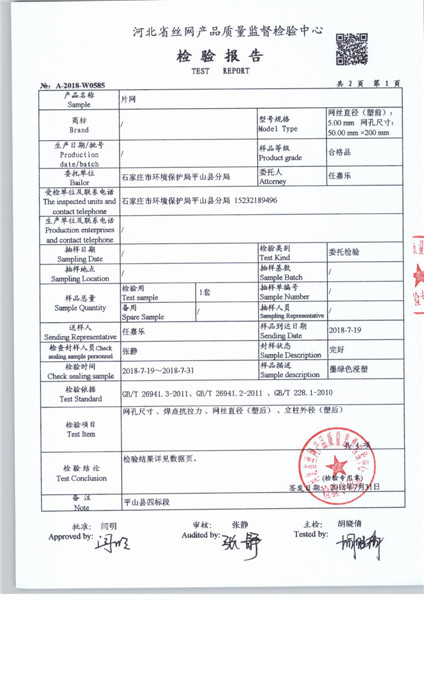 河北省丝网产品质量监督检验中心
检验报告
TEST REPORT
№: A-2018-W0585 共 2 页 第 1 页
产品名称 Sample 片网
商标 Brand / 型号规格 Model Type 网丝直径（塑前）: 5.00 mm 网孔尺寸: 50.00 mm×200 mm
生产日期/批号 Production date/batch / 样品等级 Product grade 合格品
委托单位 Bailor 石家庄市环境保护局平山县分局 委托人 Attorney 任嘉乐
受检单位及联系电话 The inspected units and contact telephone 石家庄市环境保护局平山县分局 15232189496
生产单位及联系电话 Production enterprises and contact telephone /
抽样日期 Sampling Date / 检验类别 Test Kind 委托检验
抽样地点 Sampling Location / 抽样基数 Sample Batch /
样品总量 Sample Quantity 检验用 Test sample 1套 抽样单编号 Sample Number /
备用 Spare Sample / 抽样人员 Sampling Representative /
送样人 Sending Representative 任嘉乐 样品到达日期 Sending Date 2018-7-19
检查封样人员Check sealing sample personnel 张静 封样状态 Sample Description 完好
检验时间 Check sealing sample 2018-7-19～2018-7-31 样品描述 Sample description 墨绿色浸塑
检验依据 Test Standard GB/T 26941.3-2011、GB/T 26941.2-2011 、GB/T 228.1-2010
检验项目 Test Item 网孔尺寸 、焊点抗拉力 、网丝直径（塑后）、立柱外径（塑后）
共 4 项
检验结论 Test Conclusion 检验结果详见数据页。
(检验专用章)
签发日期: 2018年7月31日
备注 Note 平山县四标段
批准: 闫明 审核: 张静 主检: 胡晓倩
Approved by: 闫明 Audited by: 张静 Tested by: 胡晓倩